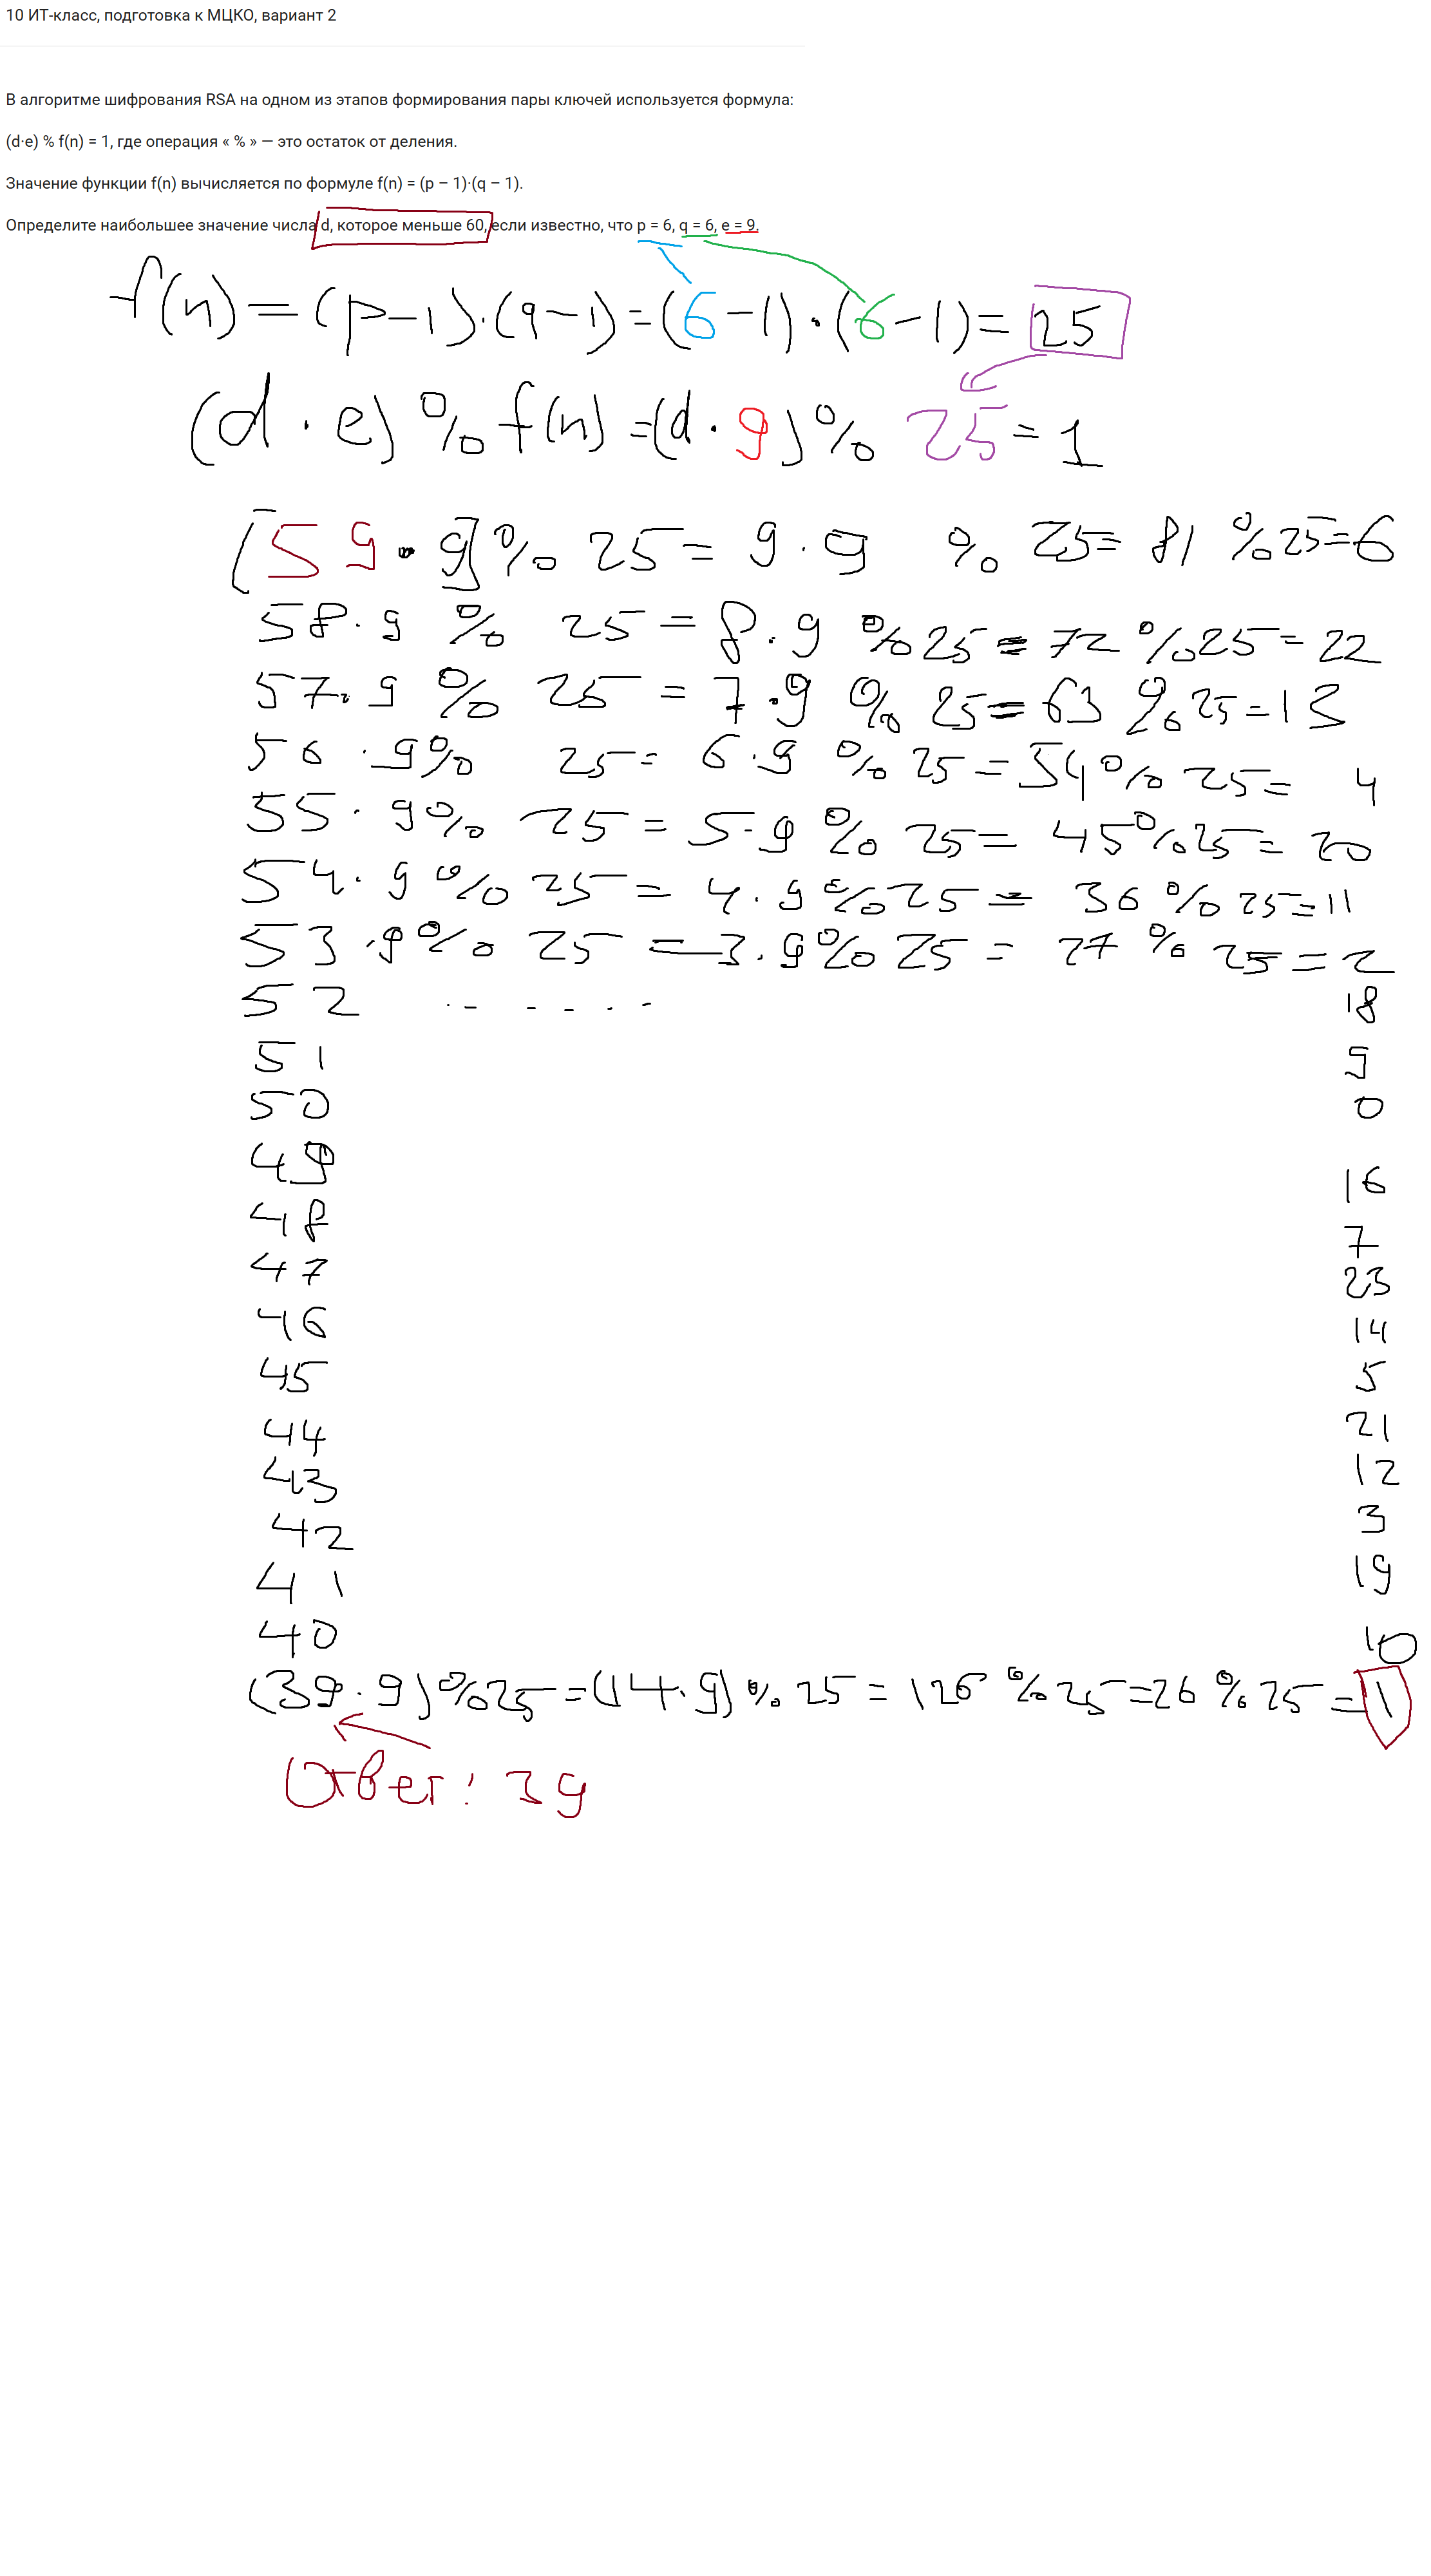 10 ИТ-класс, подготовка к МЦКО, вариант 2
В алгоритме шифрования RSA на одном из этапов формирования пары ключей используется формула:
(d·e) % f(n) = 1, где операция « % » — это остаток от деления.
Значение функции f(n) вычисляется по формуле f(n) = (p − 1)·(q − 1).
Определите наибольшее значение числа d, которое меньше 60, если известно, что p = 6, q = 6, e = 9.
f(n) = (p-1)·(q-1) = (6-1)·(6-1) = 25
(d·e) % f(n) = (d·9) % 25 = 1
(59·9) % 25 = 9·9 % 25 = 81 % 25 = 6
58·9 % 25 = 8·9 % 25 = 72 % 25 = 22
57·9 % 25 = 7·9 % 25 = 63 % 25 = 13
56·9 % 25 = 6·9 % 25 = 54 % 25 = 4
55·9 % 25 = 5·9 % 25 = 45 % 25 = 20
54·9 % 25 = 4·9 % 25 = 36 % 25 = 11
53·9 % 25 = 3·9 % 25 = 27 % 25 = 2
52 ...... 18
51 9
50 0
49 16
48 7
47 23
46 14
45 5
44 21
43 12
42 3
41 19
40 10
(39·9) % 25 = (14·9) % 25 = 126 % 25 = 26 % 25 = 1
Ответ: 39